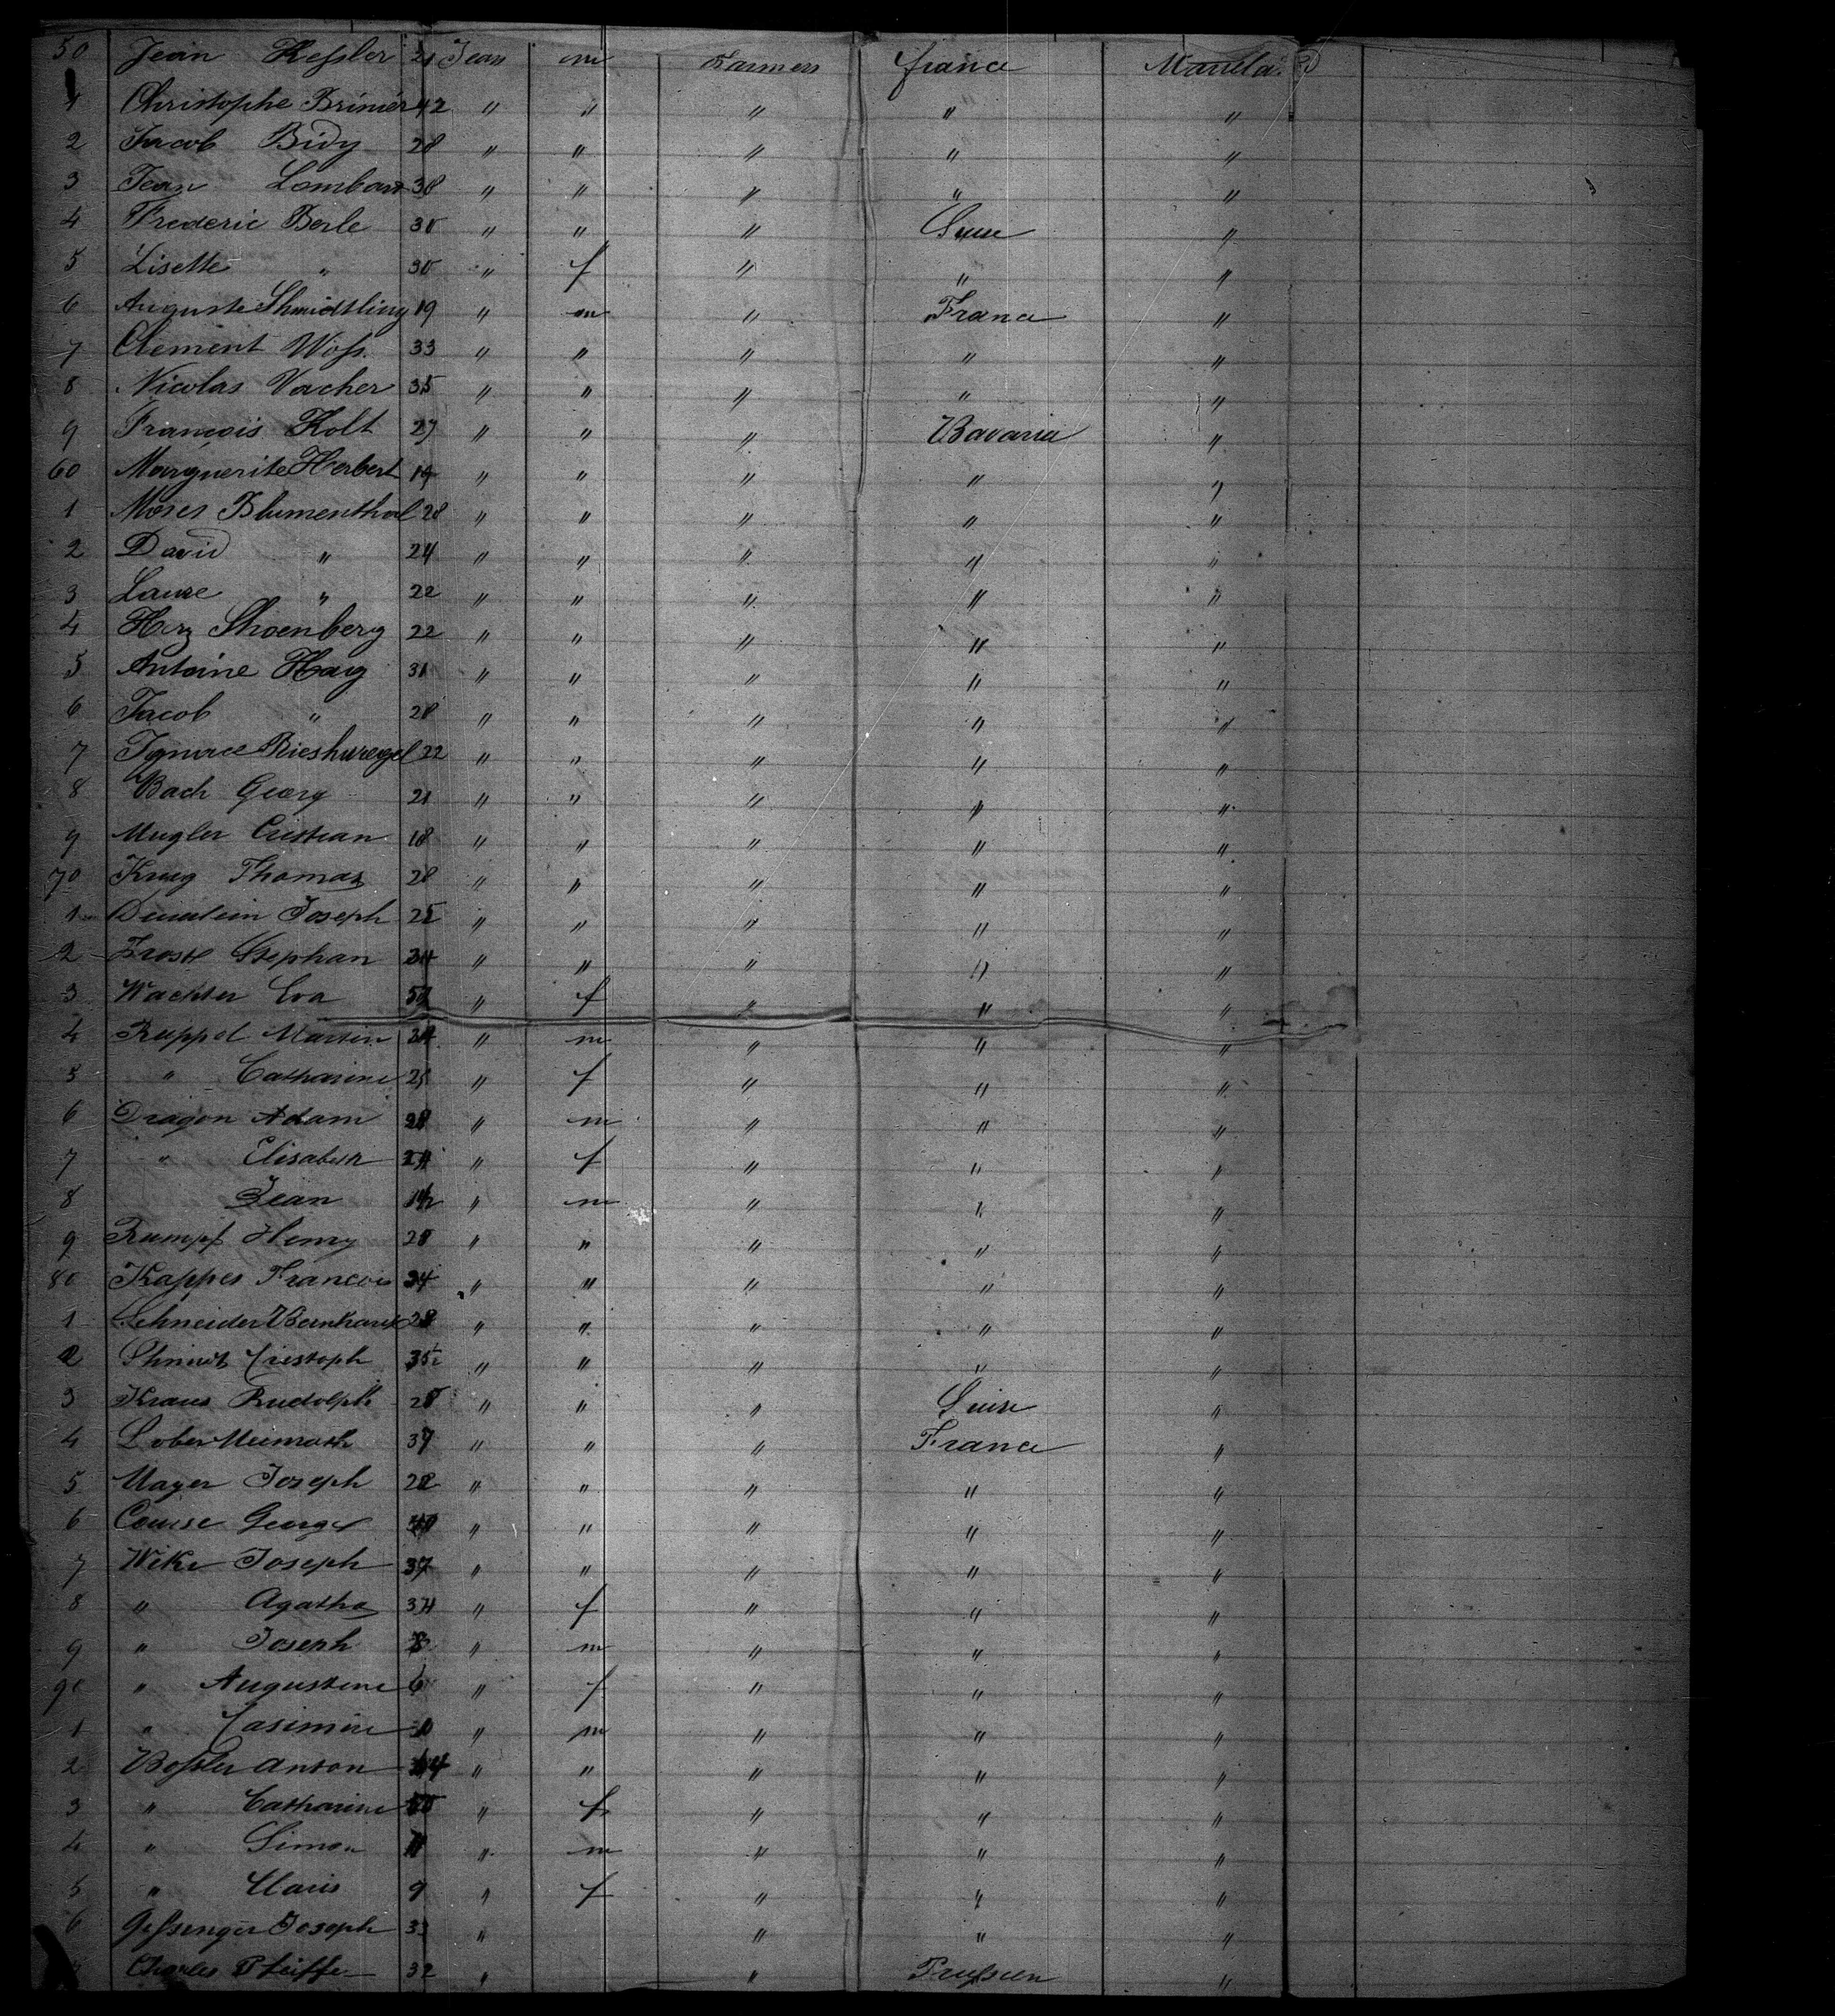 50 Jean Keßler 21 Jean m Farmers france
1 Christophe Brinier 42 " " " " "
2 Jacob Bidy 28 " " " " "
3 Jean Lombard 38 " " " " "
4 Frederic Berle 30 " " " Suise "
5 Lisette " 30 " f " " "
6 Auguste Shmidtling 19 " m " France "
7 Clement Woß. 33 " " " " "
8 Nicolas Vacher 35 " " " " "
9 François Kolt 27 " " " Bavaria "
60 Marguerite Herbert 19 " " " " "
1 Moses Blumenthal 28 " " " " "
2 David " 24 " " " " "
3 Laure " 22 " " " " "
4 Herz Shoenberg 22 " " " " "
5 Antoine Haug 31 " " " " "
6 Jacob " 28 " " " " "
7 Ignace 22 " " " " "
8 Bach Georg 21 " " " " "
9 Mugler Cristian 18 " " " " "
70 Krug Thomas 28 " " " " "
1 Joseph 25 " " " " "
2 Frost Stephan " " " " "
3 Wachter Eva " f " " "
4 Ruppel Martin " m " " "
5 " Catharine " f " " "
6 Dragon Adam 28 " m " " "
7 " Elisabeth " f " " "
8 Jean " m " " "
9 Rumpf Henry 28 " " " " "
80 Kappes Francois 34 " " " " "
1 Schneider Bernhard 28 " " " " "
2 Shmidt Cristoph " " " " "
3 Kraus Rudolph " " " Suise "
4 Lober 37 " " " France "
5 Mayer Joseph " " " " "
6 Couise George " " " " "
7 Wike Joseph 37 " " " " "
8 " Agatha " f " " "
9 " Joseph 8 " m " " "
90 " Augustine 6 " f " " "
1 " Casimire " m " " "
2 Boßler Anton " " " " "
3 " Catharine " f " " "
4 " Simon " m " " "
5 " Maris 9 " f " " "
6 Geßenger Joseph 33 " " " "
7 Charles Pfeiffe 32 " " Preußen "